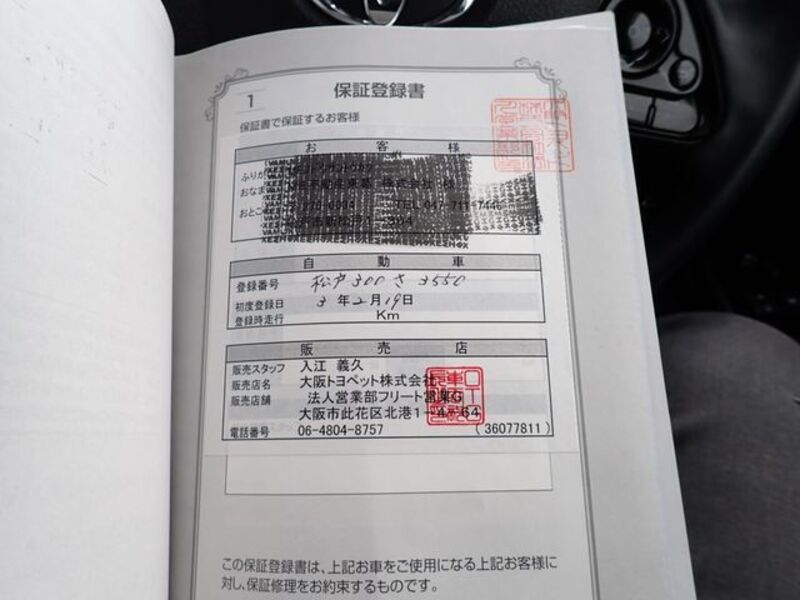 1
保証登録書
保証書で保証するお客様
お 客 様
ふりが
おなま
株式会社 様
おところ
TEL 047-711-7446
自 動 車
登録番号 松戸 300 さ 3550
初度登録日 3 年 2 月 19 日
登録時走行 Km
販 売 店
販売スタッフ 入江 義久
販売店名 大阪トヨペット株式会社
販売店舗 法人営業部フリート営業G
大阪市此花区北港1-4-64
電話番号 06-4804-8757 (36077811)
この保証登録書は、上記お車をご使用になる上記お客様に
対し、保証修理をお約束するものです。